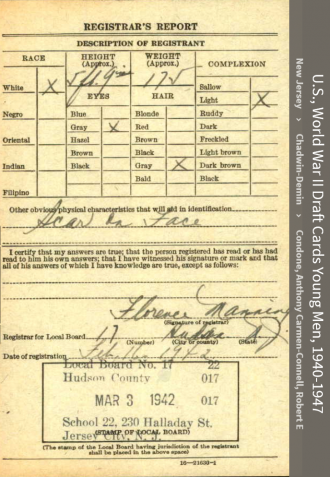 REGISTRAR'S REPORT
DESCRIPTION OF REGISTRANT
RACE
HEIGHT (Approx.)
WEIGHT (Approx.)
COMPLEXION
5 ft 9 in
175
White X
EYES
HAIR
Sallow
Light X
Negro
Blue
Blonde
Ruddy
Gray X
Red
Dark
Oriental
Hazel
Brown
Freckled
Brown
Black
Light brown
Indian
Black
Gray X
Dark brown
Bald
Black
Filipino
Other obvious physical characteristics that will aid in identification
Scar on Face
I certify that my answers are true; that the person registered has read or has had
read to him his own answers; that I have witnessed his signature or mark and that
all of his answers of which I have knowledge are true, except as follows:
Florence Manning
(Signature of registrar)
Registrar for Local Board 17 Hudson N.J.
(Number) (City or county) (State)
Date of registration Feb. 16, 1942
Local Board No. 17 22
Hudson County 017
MAR 3 1942 017
School 22, 230 Halladay St.
Jersey City, N. J.
(STAMP OF LOCAL BOARD)
(The stamp of the Local Board having jurisdiction of the registrant
shall be placed in the above space)
16—21630-1
U.S., World War II Draft Cards Young Men, 1940-1947
New Jersey > Chadwin-Demin > Condone, Anthony Carmen-Connell, Robert E